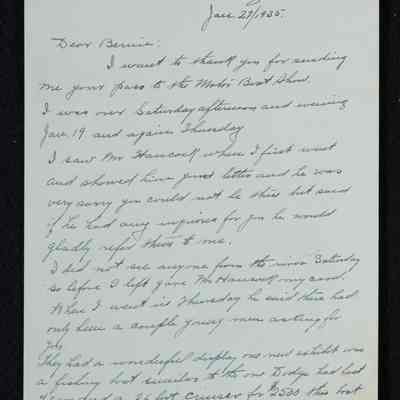 Jan. 27/1935.
Dear Bernie:
I want to thank you for sending
me your pass to the Motor Boat Show.
I was over Saturday afternoon and evening
Jan. 19 and again Thursday
I saw Mr Hancock when I first went
and showed him your letter and he was
very sorry you could not be there but said
if he had any inquires for you he would
gladly refer them to me.
I did not see anyone from the river Saturday
so before I left gave Mr Hancock my card.
When I went in Thursday he said there had
only been a couple young men asking for
you
They had a wonderful display one new exhibit was
a fishing boat similar to the one Dodge had last
a 26 foot cruiser for $2500 this boat